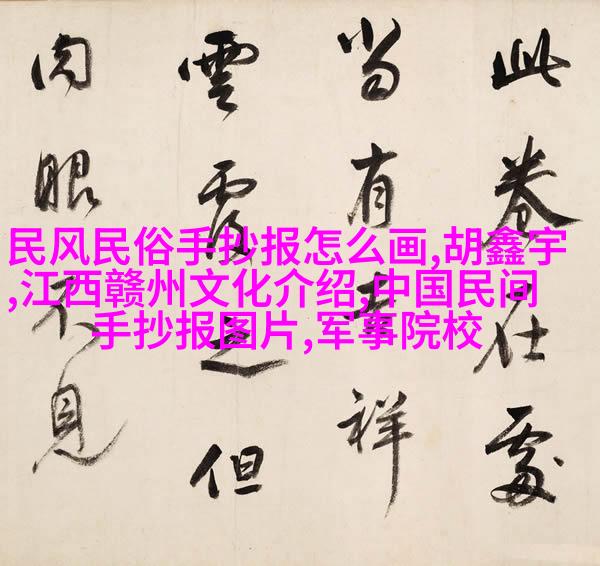 此卷在處
当有吉祥
雲覆之但
肉眼不見
民风民俗手抄报怎么画,胡鑫宇
,江西赣州文化介绍,中国民间
手抄报图片,军事院校